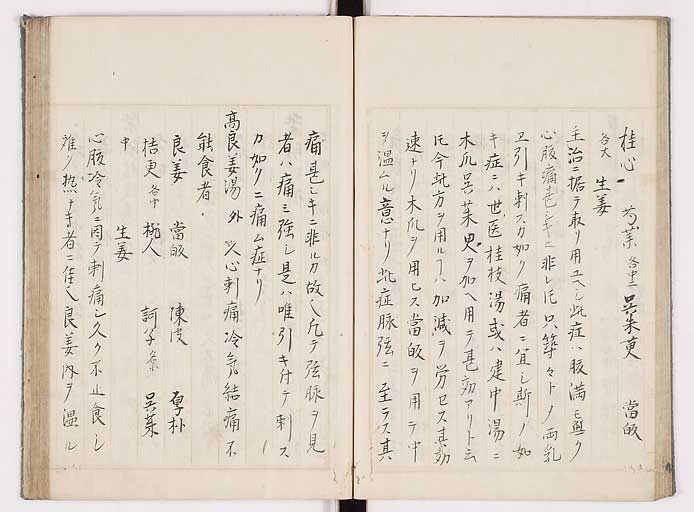 桂心 芍薬各中 呉茱萸 當皈
各大 生姜
主治ニ據テ取リ用ユヘシ此症ハ腹満モ無ク
心腹痛甚シキニ非レ𪜈只築々トノ両乳
ヱ引キ刺スカ如ク痛者ニ宜シ斯ノ如
キ症ニハ世医桂枝湯或ハ建中湯ニ
木爪呉茱ヲ加ヘ用テ甚効アリト云
𪜈今此方ヲ用ルヿハ加減ヲ労セス其効
速ナリ木爪ヲ用ヒス當皈ヲ用テ中
ヲ温ムル意ナリ此症脉弦ニ至ラス其
痛甚シキニ非ルカ故ヘ凡テ弦脉ヲ見
者ハ痛ミ強シ是ハ唯引キ付テ刺ス
カ如クニ痛ム症ナリ
高良姜湯 外 心刺痛冷気結痛不
能食者
良姜 當皈 陳皮 厚朴
桔更各中 桃人 訶子 呉茱
中 生姜
心腹冷気ニ因テ刺痛シ久ク不止食シ
難ク熱ナキ者ニ佳シ良姜内ヲ温ル